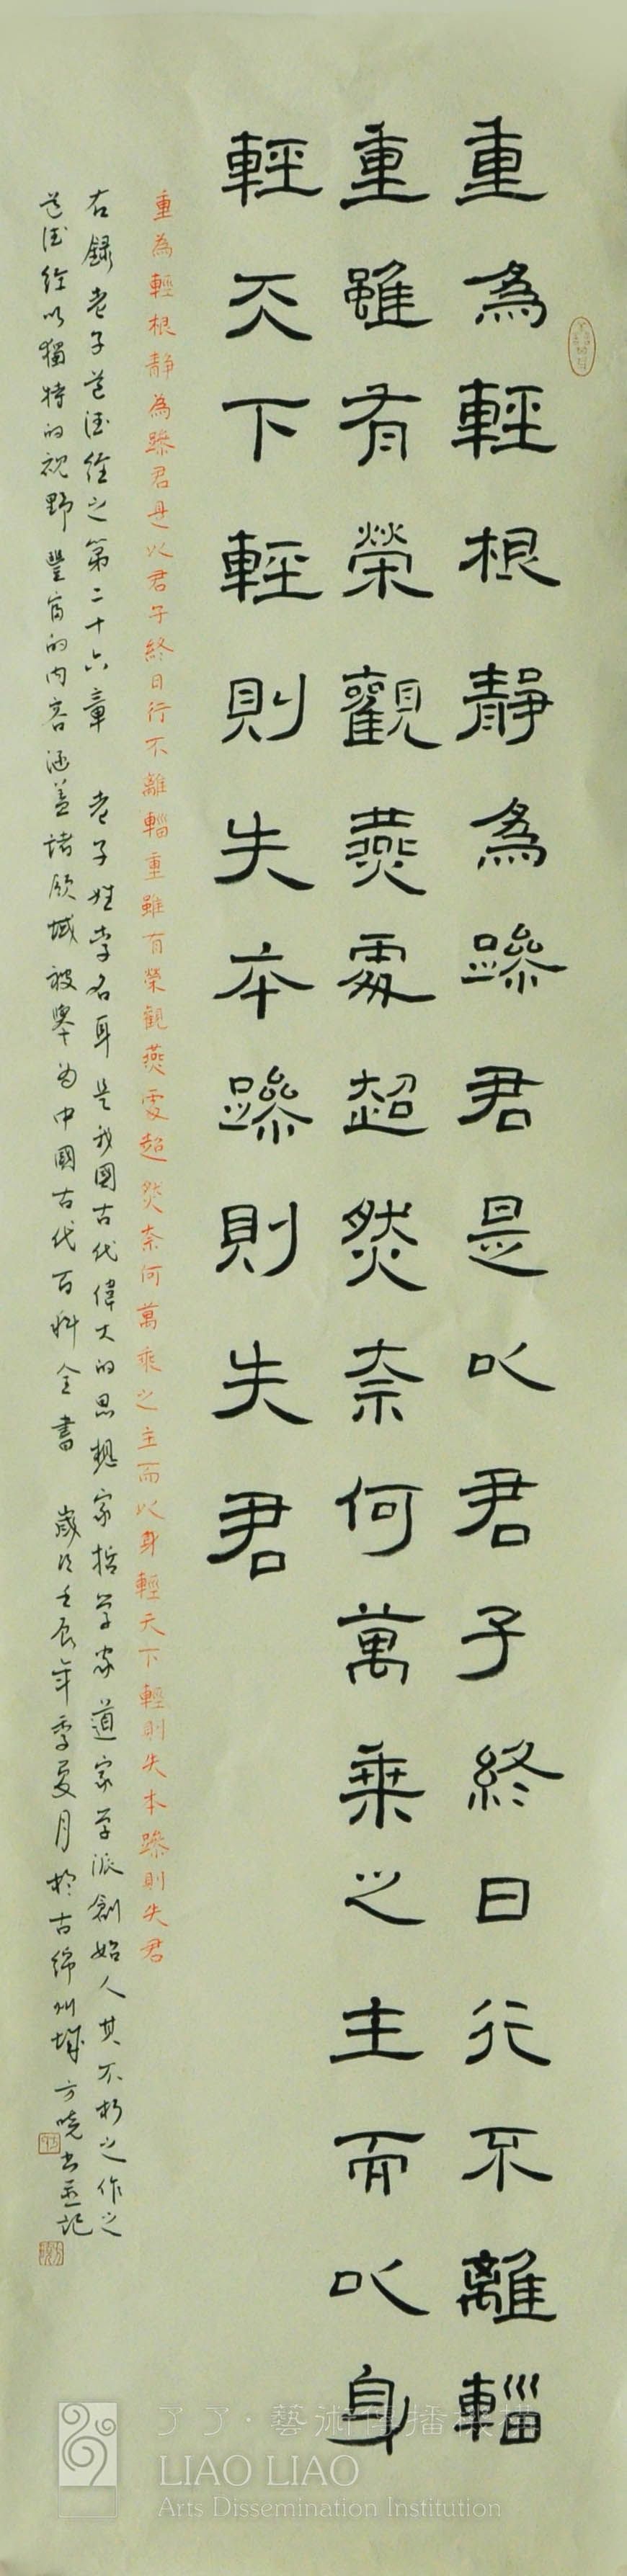 重為輕根靜為躁君是以君子終日行不離輜
重雖有榮觀燕處超然奈何萬乘之主而以身
輕天下輕則失本躁則失君
重為輕根靜為躁君是以君子終日行不離輜重雖有榮觀燕處超然奈何萬乘之主而以身輕天下輕則失本躁則失君
右錄老子道德經之第二十六章 老子姓李名耳是我國古代偉大的思想家哲学家道家学派創始人其不朽之作之
道德經以獨特的視野豐富的内容涵蓋諸領域被舉為中國古代百科全書 歲次壬辰年季夏月於古綿州城方曉書並記
了了·藝術傳播機構
LIAO LIAO
Arts Dissemination Institution